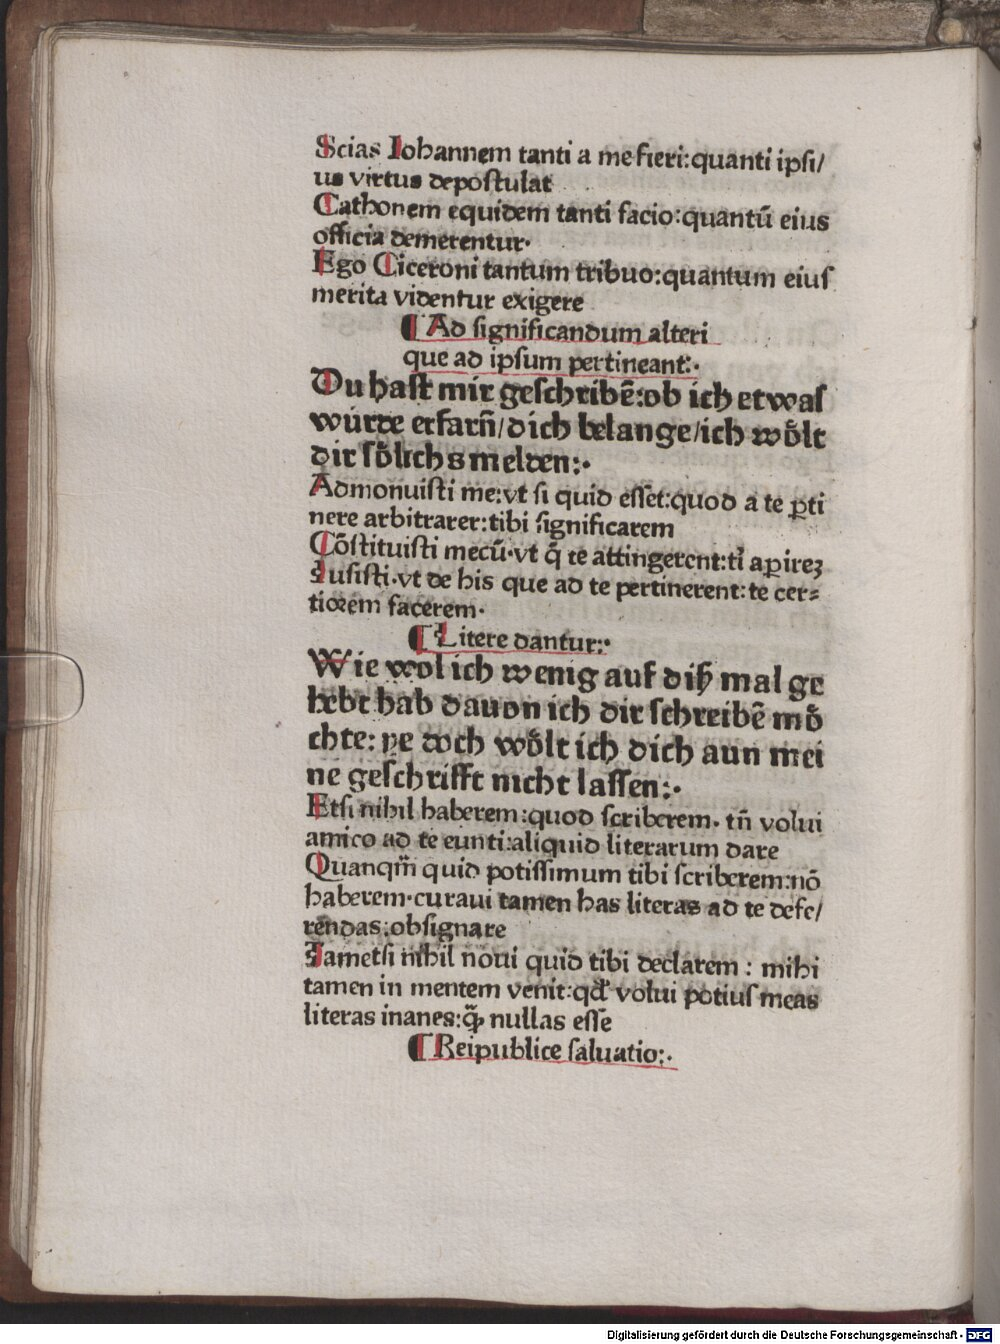 Scias Iohannem tanti a me fieri:quanti ipsi/
us virtus depostulat
Cathonem equidem tanti facio:quantū eius
officia demerentur·
Ego Ciceroni tantum tribuo:quantum eiuſ
merita videntur exigere
¶ Ad ſignificandum alteri
que ad ipſum pertineant:·
Du haſt mir geſchribē:ob ich etwaſ
wurde erfarn̄/dich belange/ich woͤlt
dir ſoͤlichs melden:·
Admonuiſti me:vt ſi quid eſſet:quod a te ꝑti
nere arbitrarer:tibi ſignificarem
Cōſtituiſti mecū·vt q̄ te attingerent:ti apirēꝫ
Iuſiſti·vt de his que ad te pertinerent:te cer⸗
tiorem facerem·
¶ Litere dantur:·
Wie wol ich wenig auf diß mal ge
hebt hab dauon ich dir ſchreibē moͤ
chte: ye doch woͤlt ich dich aun mei
ne geſchrifft nicht laſſen:·
Etſi nihil haberem:quod ſcriberem· tn̄ volui
amico ad te eunti:aliquid literarum dare
Quanqm̄ quid potiſſimum tibi ſcriberem:nō
haberem·curaui tamen has literas ad te defe/
rendas:obſignare
Tametſi nihil noui quid tibi declarem : mihi
tamen in mentem venit:qd volui potiuſ meas
literas inanes:ꝙ̄ nullas eſſe
¶ Reipublice ſaluatio:·
Digitalisierung gefördert durch die Deutsche Forschungsgemeinschaft - DFG